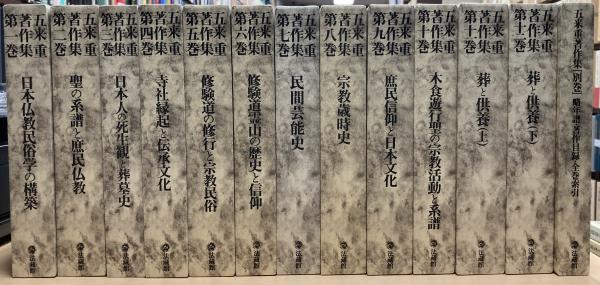 五来重
著作集
第一巻
日本仏教民俗学の構築
法藏館
五来重
著作集
第二巻
聖の系譜と庶民仏教
法藏館
五来重
著作集
第三巻
日本人の死生観と葬墓史
法藏館
五来重
著作集
第四巻
寺社縁起と伝承文化
法藏館
五来重
著作集
第五巻
修験道の修行と宗教民俗
法藏館
五来重
著作集
第六巻
修験道霊山の歴史と信仰
法藏館
五来重
著作集
第七巻
民間芸能史
法藏館
五来重
著作集
第八巻
宗教歳時史
法藏館
五来重
著作集
第九巻
庶民信仰と日本文化
法藏館
五来重
著作集
第十巻
木食遊行聖の宗教活動と系譜
法藏館
五来重
著作集
第十一巻
葬と供養(上)
法藏館
五来重
著作集
第十二巻
葬と供養(下)
法藏館
五来重著作集[別巻] 略年譜・著作目録・全巻索引
法藏館